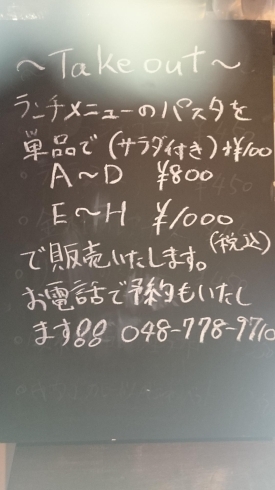 ～Take out～
ランチメニューのパスタを
単品で(サラダ付き)+¥100
A～D ¥800
E～H ¥1000
(税込)
で販売いたします。
お電話で予約もいたし
ます!! 048-778-9710